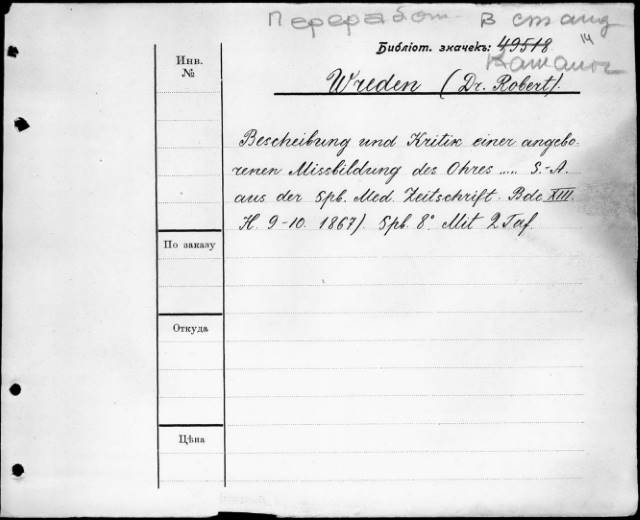 Переработ. в станд
14
Библіот. значекъ: 49518
Каталог
Инв.
№
Wreden (Dr. Robert).
Bescheibung und Kritik einer angebo-
renen Missbildung des Ohres ..... S.-A.
aus der Spb. Med. Zeitschrift. Bdc XIII.
H. 9-10. 1867). Spb. 8° Mit 2 Taf.
По заказу
Откуда
Цѣна